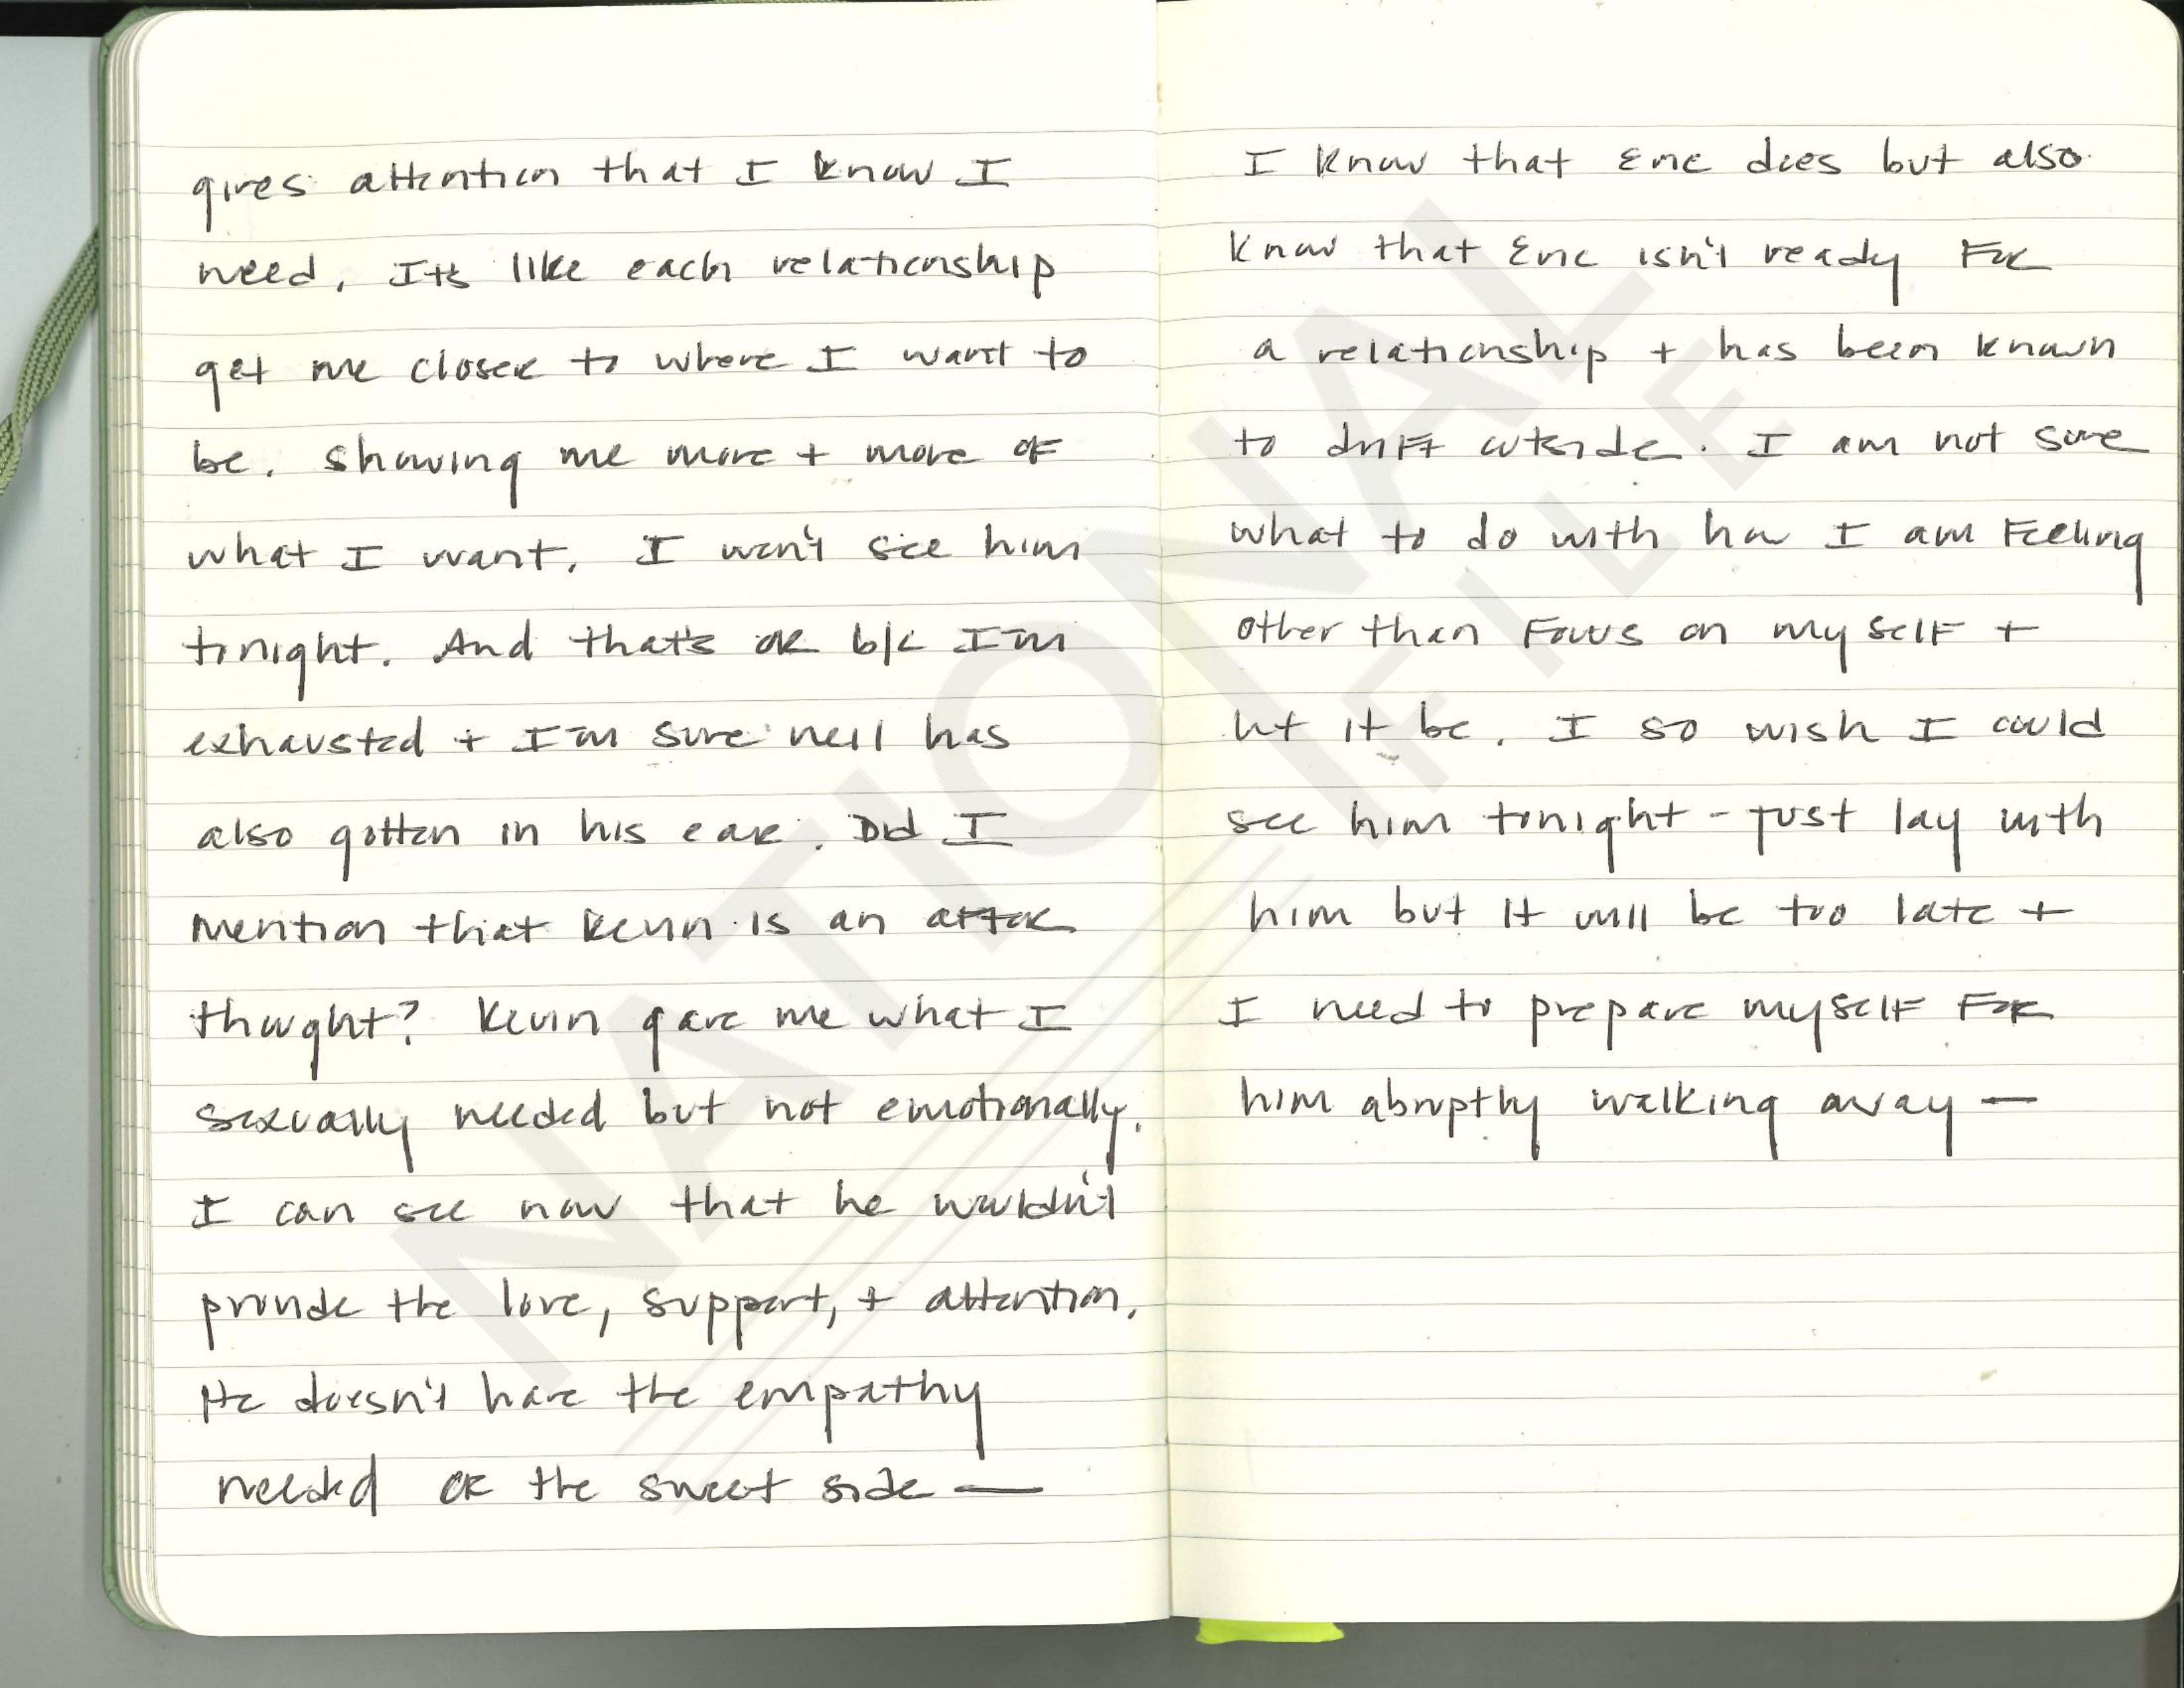 gives attention that I know I
need. Its like each relationship
get me closer to where I want to
be. Showing me more + more of
what I want. I won't see him
tonight. And that's ok b/c I'm
exhausted + I'm sure neil has
also gotten in his ear. Did I
mention that Kevin is an after
thought? Kevin gave me what I
sexually needed but not emotionally.
I can see now that he wouldn't
provide the love, support, + attention.
He doesn't have the empathy
needed or the sweet side —
I know that Eric does but also
know that Eric isn't ready For
a relationship + has been known
to drift outside. I am not sure
what to do with how I am Feeling
other than Focus on myself +
let it be. I so wish I could
see him tonight - just lay with
him but it will be too late +
I need to prepare myself For
him abruptly walking away —
NATIONAL
FILE